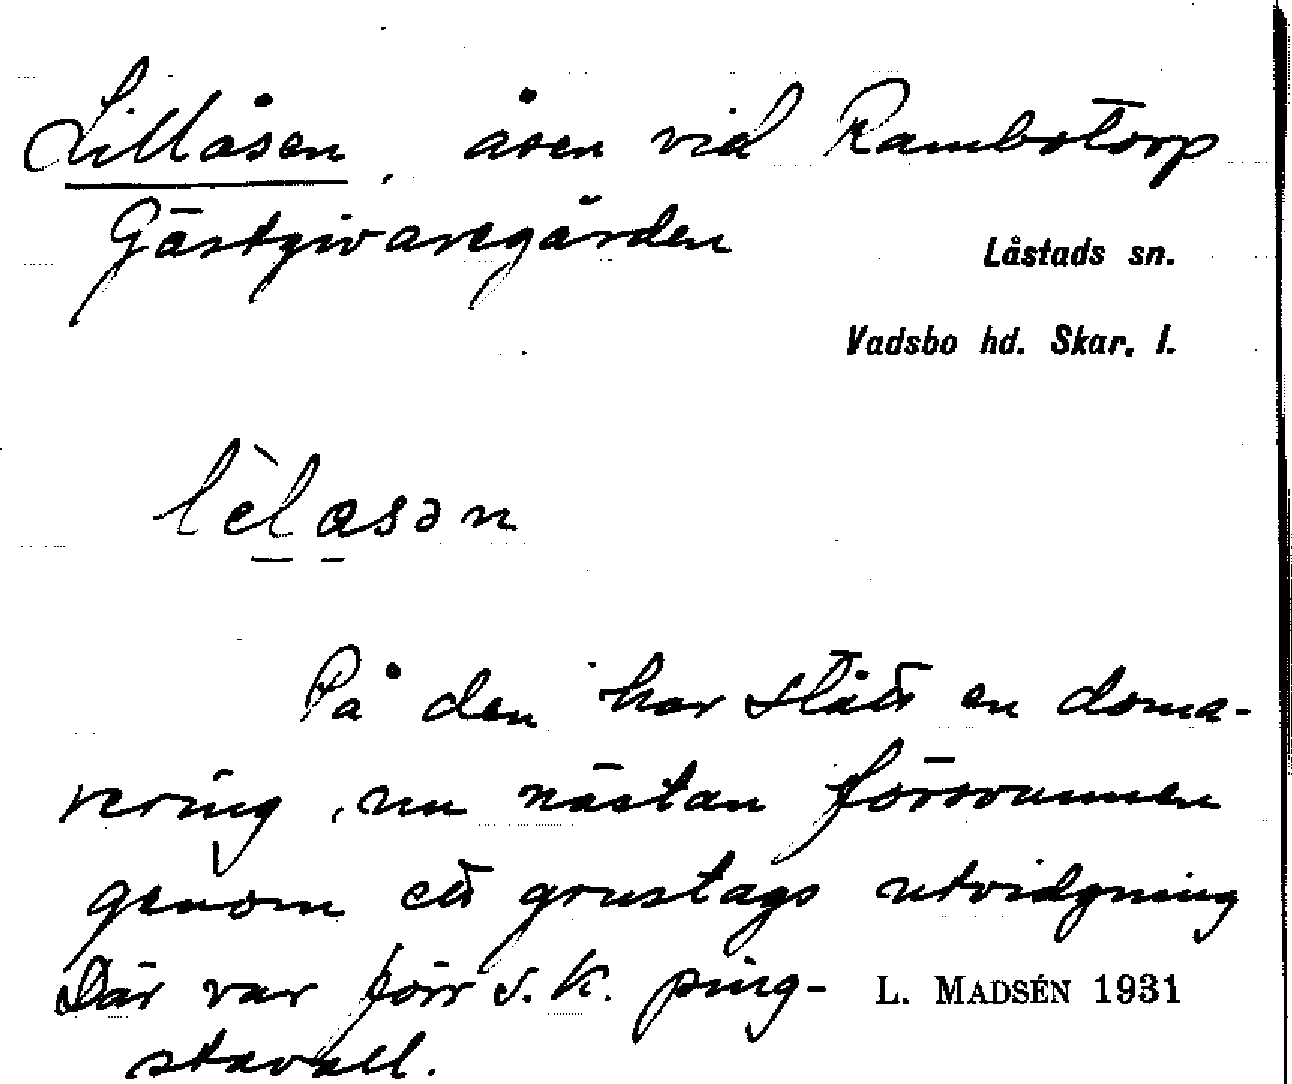 Lillåsen, åsen vid Rambotorp
Gästgivaregården
Låstads sn.
Vadsbo hd. Skar. l.
lèlasən
På den har stått en doma-
rering, nu nästan försvunnen
genom ett grustags utvidgning
Där var förr s.k. ping-
L. MADSÉN 1931
stavall.